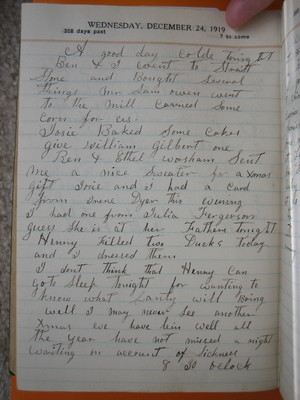 WEDNESDAY, DECEMBER 24, 1919
358 days past 7 to come
A good day Colde tonight
Ben & I went to
Store and Bought Several
things Mr Sam owen went
to the Mill Carried Some
Corn for us.
Josie Baked Some Cakes
give William Gilbert one
Ben & Ethel Worsham Sent
me a nice Sweater for a Xmas
gift Josie and I had a Card
from Irene Dyer this evening
I had one from Julia Fergerson
guess She is at her Fathers tonight
Henny Killed two Ducks today
and I dressed them
I dont think that Henny Can
go to Sleep tonight for wanting to
Know what Santy will Bring
well I may never See another
Xmas we have bin well all
the year have not missed a night
waiting on account of Sickness
8 30 oclock